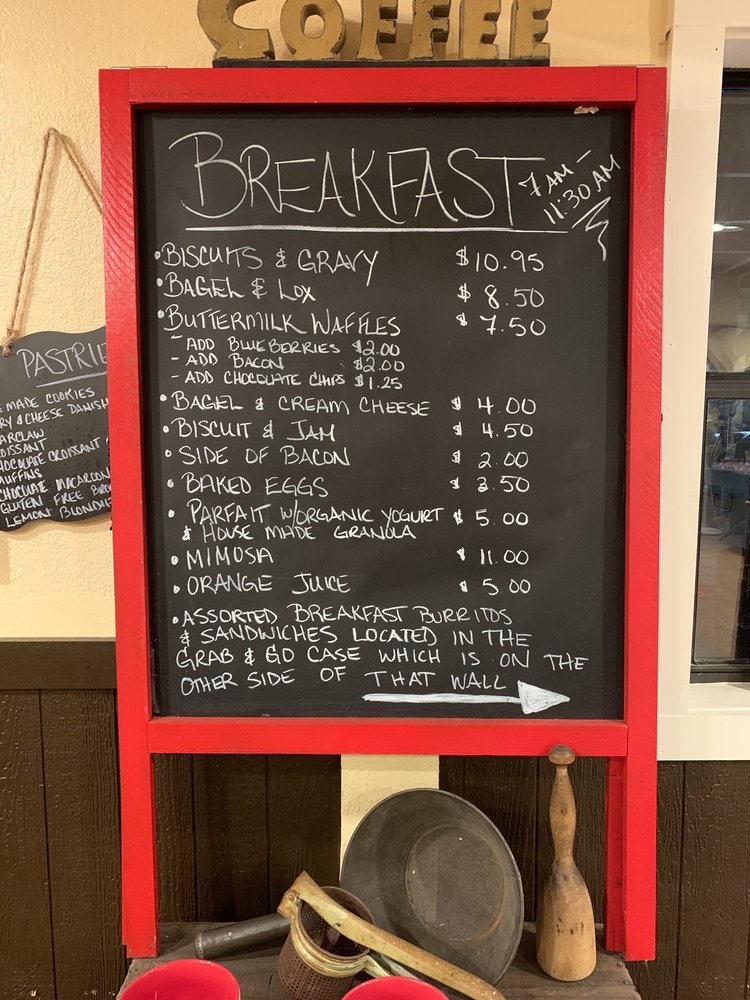 COFFEE
BREAKFAST 7 AM –
11:30 AM
• BISCUITS & GRAVY $10.95
• BAGEL & LOX $8.50
• BUTTERMILK WAFFLES $7.50
- ADD BLUEBERRIES $2.00
- ADD BACON $2.00
- ADD CHOCOLATE CHIPS $1.25
• BAGEL & CREAM CHEESE $4.00
• BISCUIT & JAM $4.50
• SIDE OF BACON $2.00
• BAKED EGGS $3.50
• PARFAIT W/ORGANIC YOGURT $5.00
& HOUSE MADE GRANOLA
• MIMOSA $11.00
• ORANGE JUICE $5.00
• ASSORTED BREAKFAST BURRITOS
& SANDWICHES LOCATED IN THE
GRAB & GO CASE WHICH IS ON THE
OTHER SIDE OF THAT WALL
PASTRIE
E MADE COOKIES
RY & CHEESE DANISH
ARCLAW
OISSANT
HOCOLATE CROISSANT
MUFFINS
CHOCOLATE MACAROON
GLUTEN FREE BRO
LEMON BLONDIE